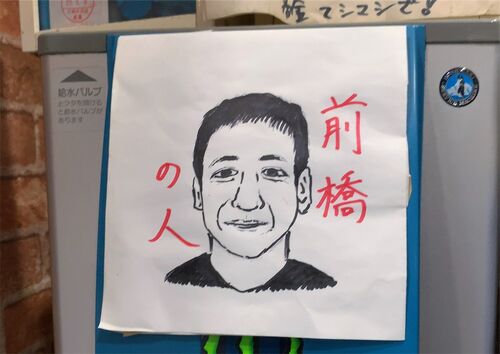 給水バルブ
上フタを開ける
と給水バルブが
あります
前橋
の人